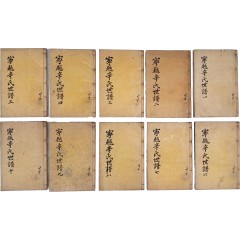 寧越辛氏世譜 一
寧越辛氏世譜 二
寧越辛氏世譜 三
寧越辛氏世譜 四
寧越辛氏世譜 五
寧越辛氏世譜 六
寧越辛氏世譜 七
寧越辛氏世譜 八
寧越辛氏世譜 九
寧越辛氏世譜 十